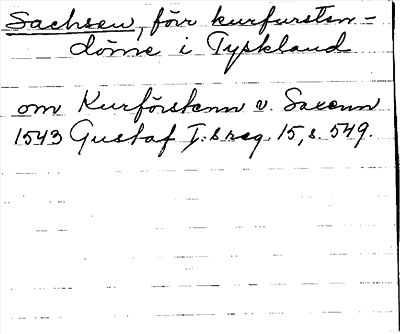 Sachsen, förr kurfursten-
döme i Tyskland
om Kurförstenn v. Saxenn
1543 Gustaf I:s reg. 15, s. 549.